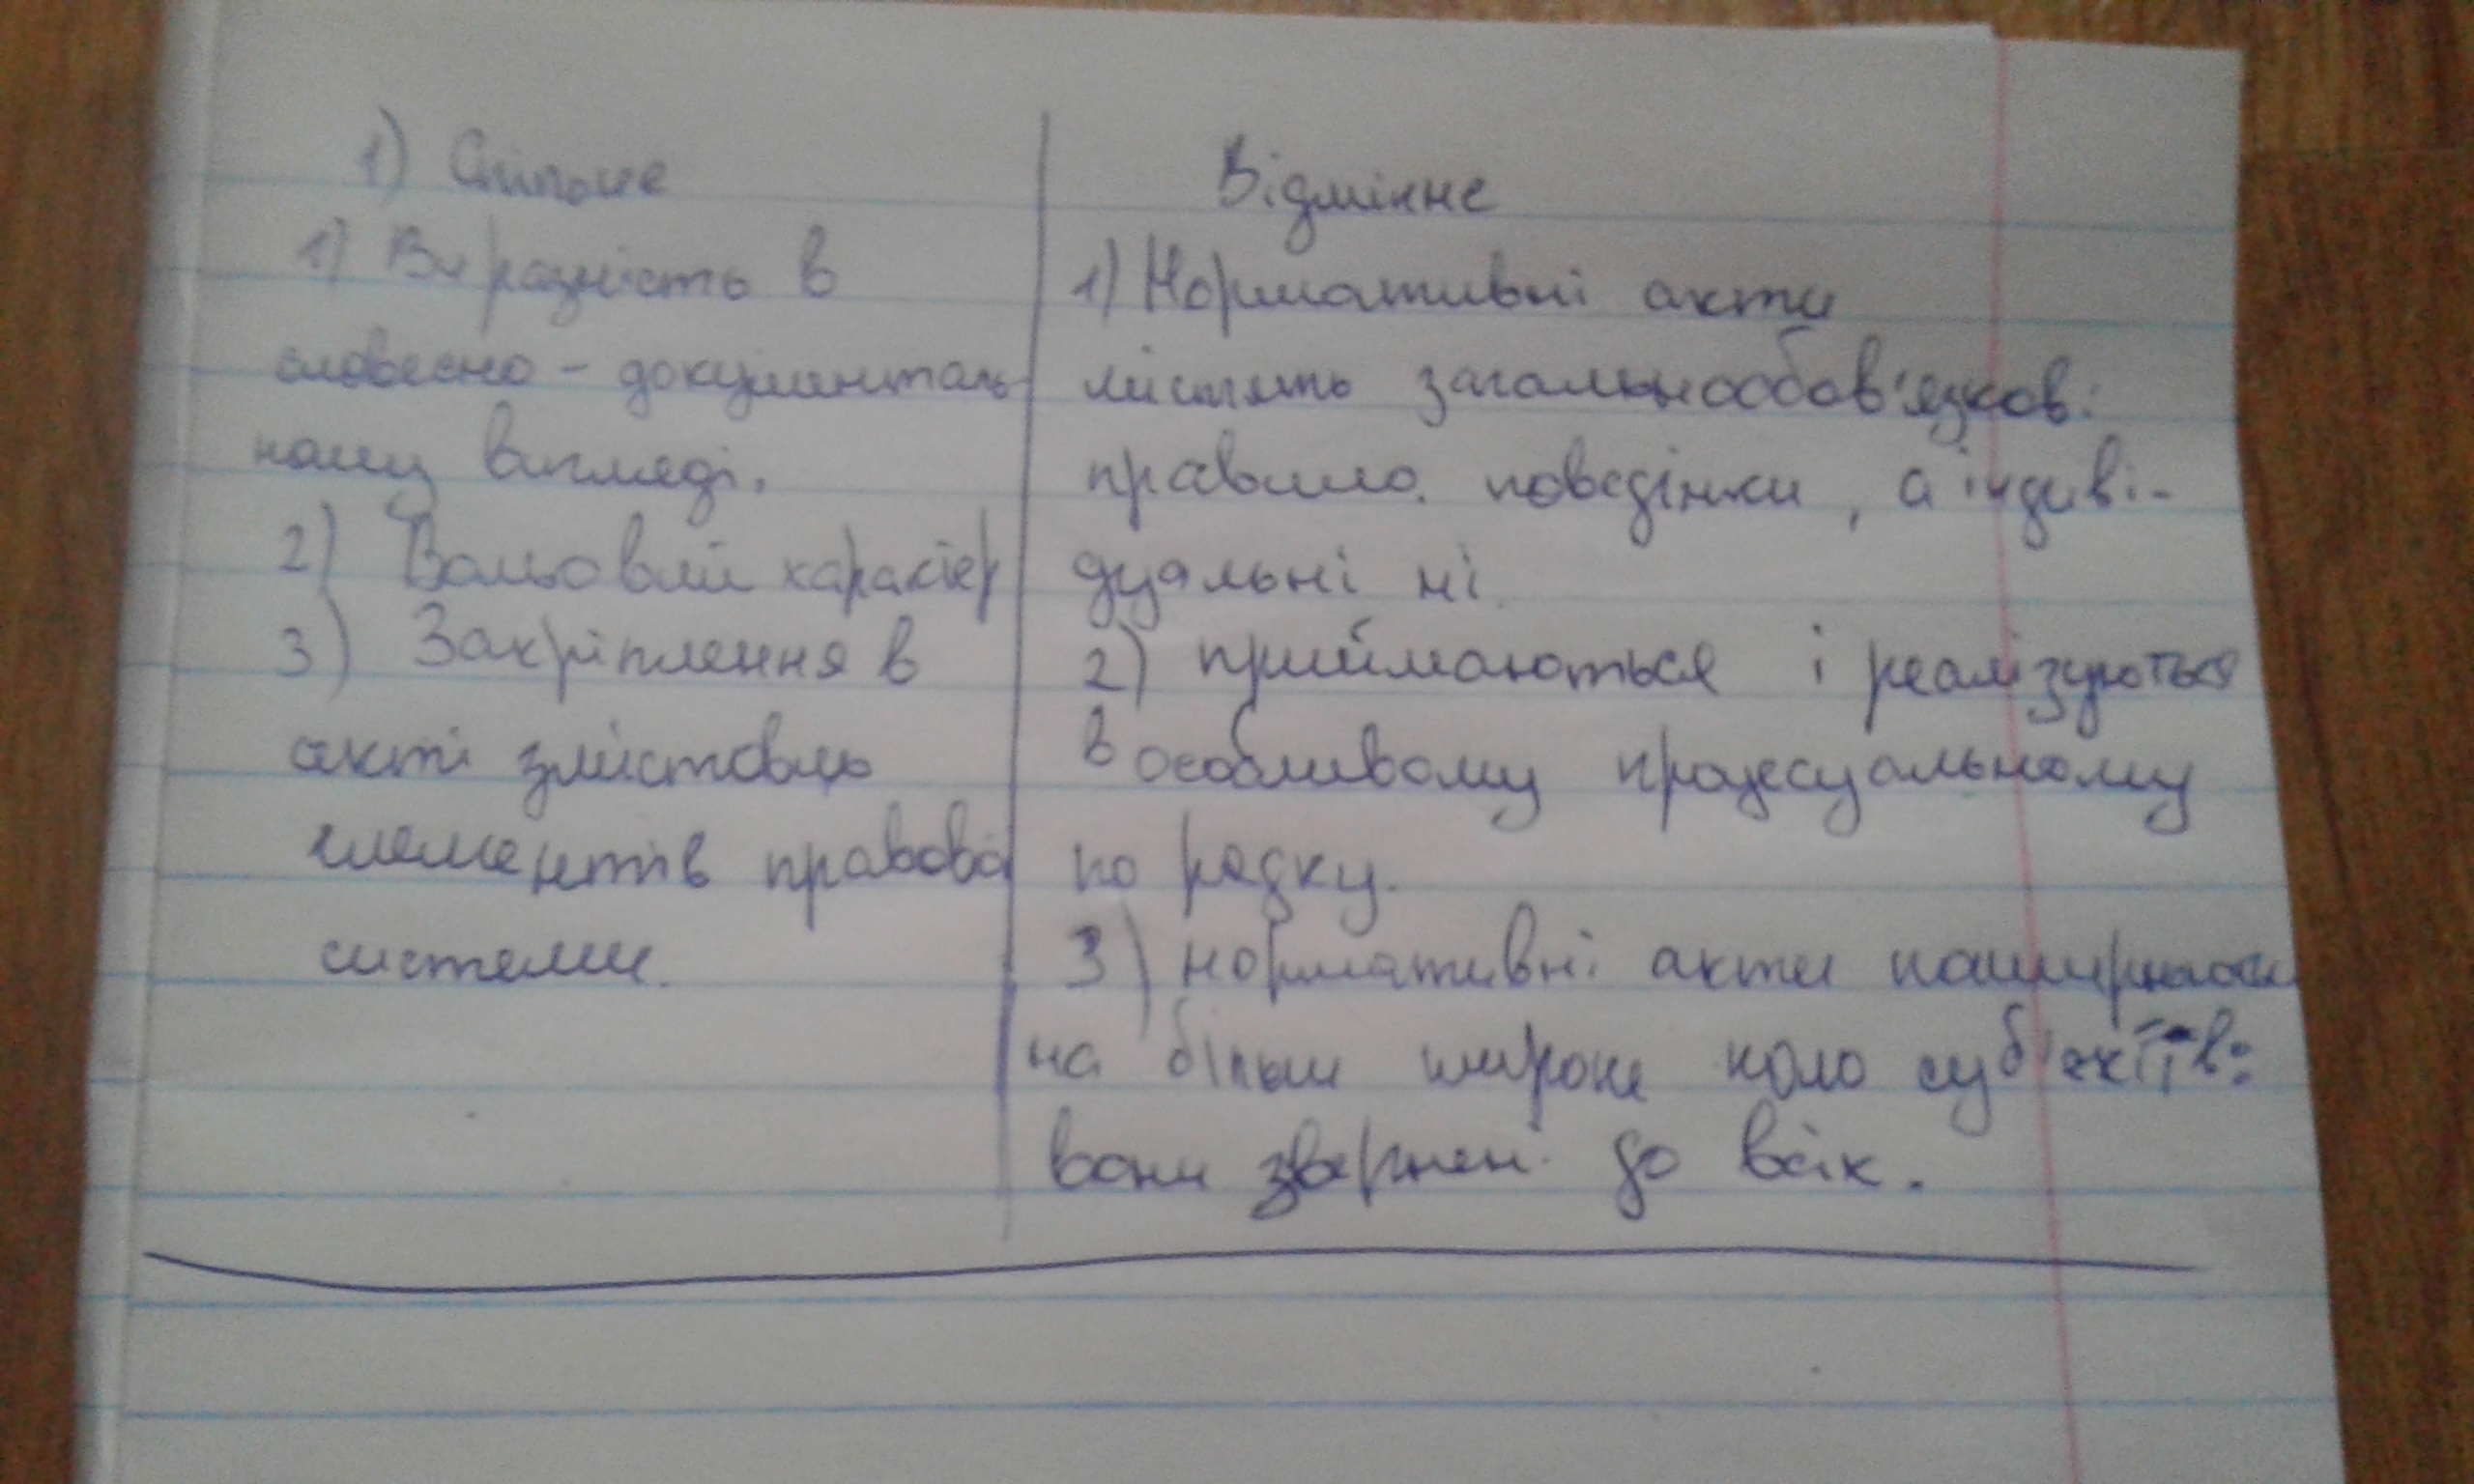 1) Спільне
1) Виразність в
словесно - документаль-
ному вигляді.
2) Вольовий характер
3) Закріплення в
акті змістовць
елементів правової
системи.
Відмінне
1) Нормативні акти
містять загальнообов'язкові
правила поведінки, а індиві-
дуальні ні.
2) приймаються і реалізуються
в особливому процесуальному
порядку.
3) нормативні акти
на більш широке коло суб'єктів:
вони звернені до всіх.